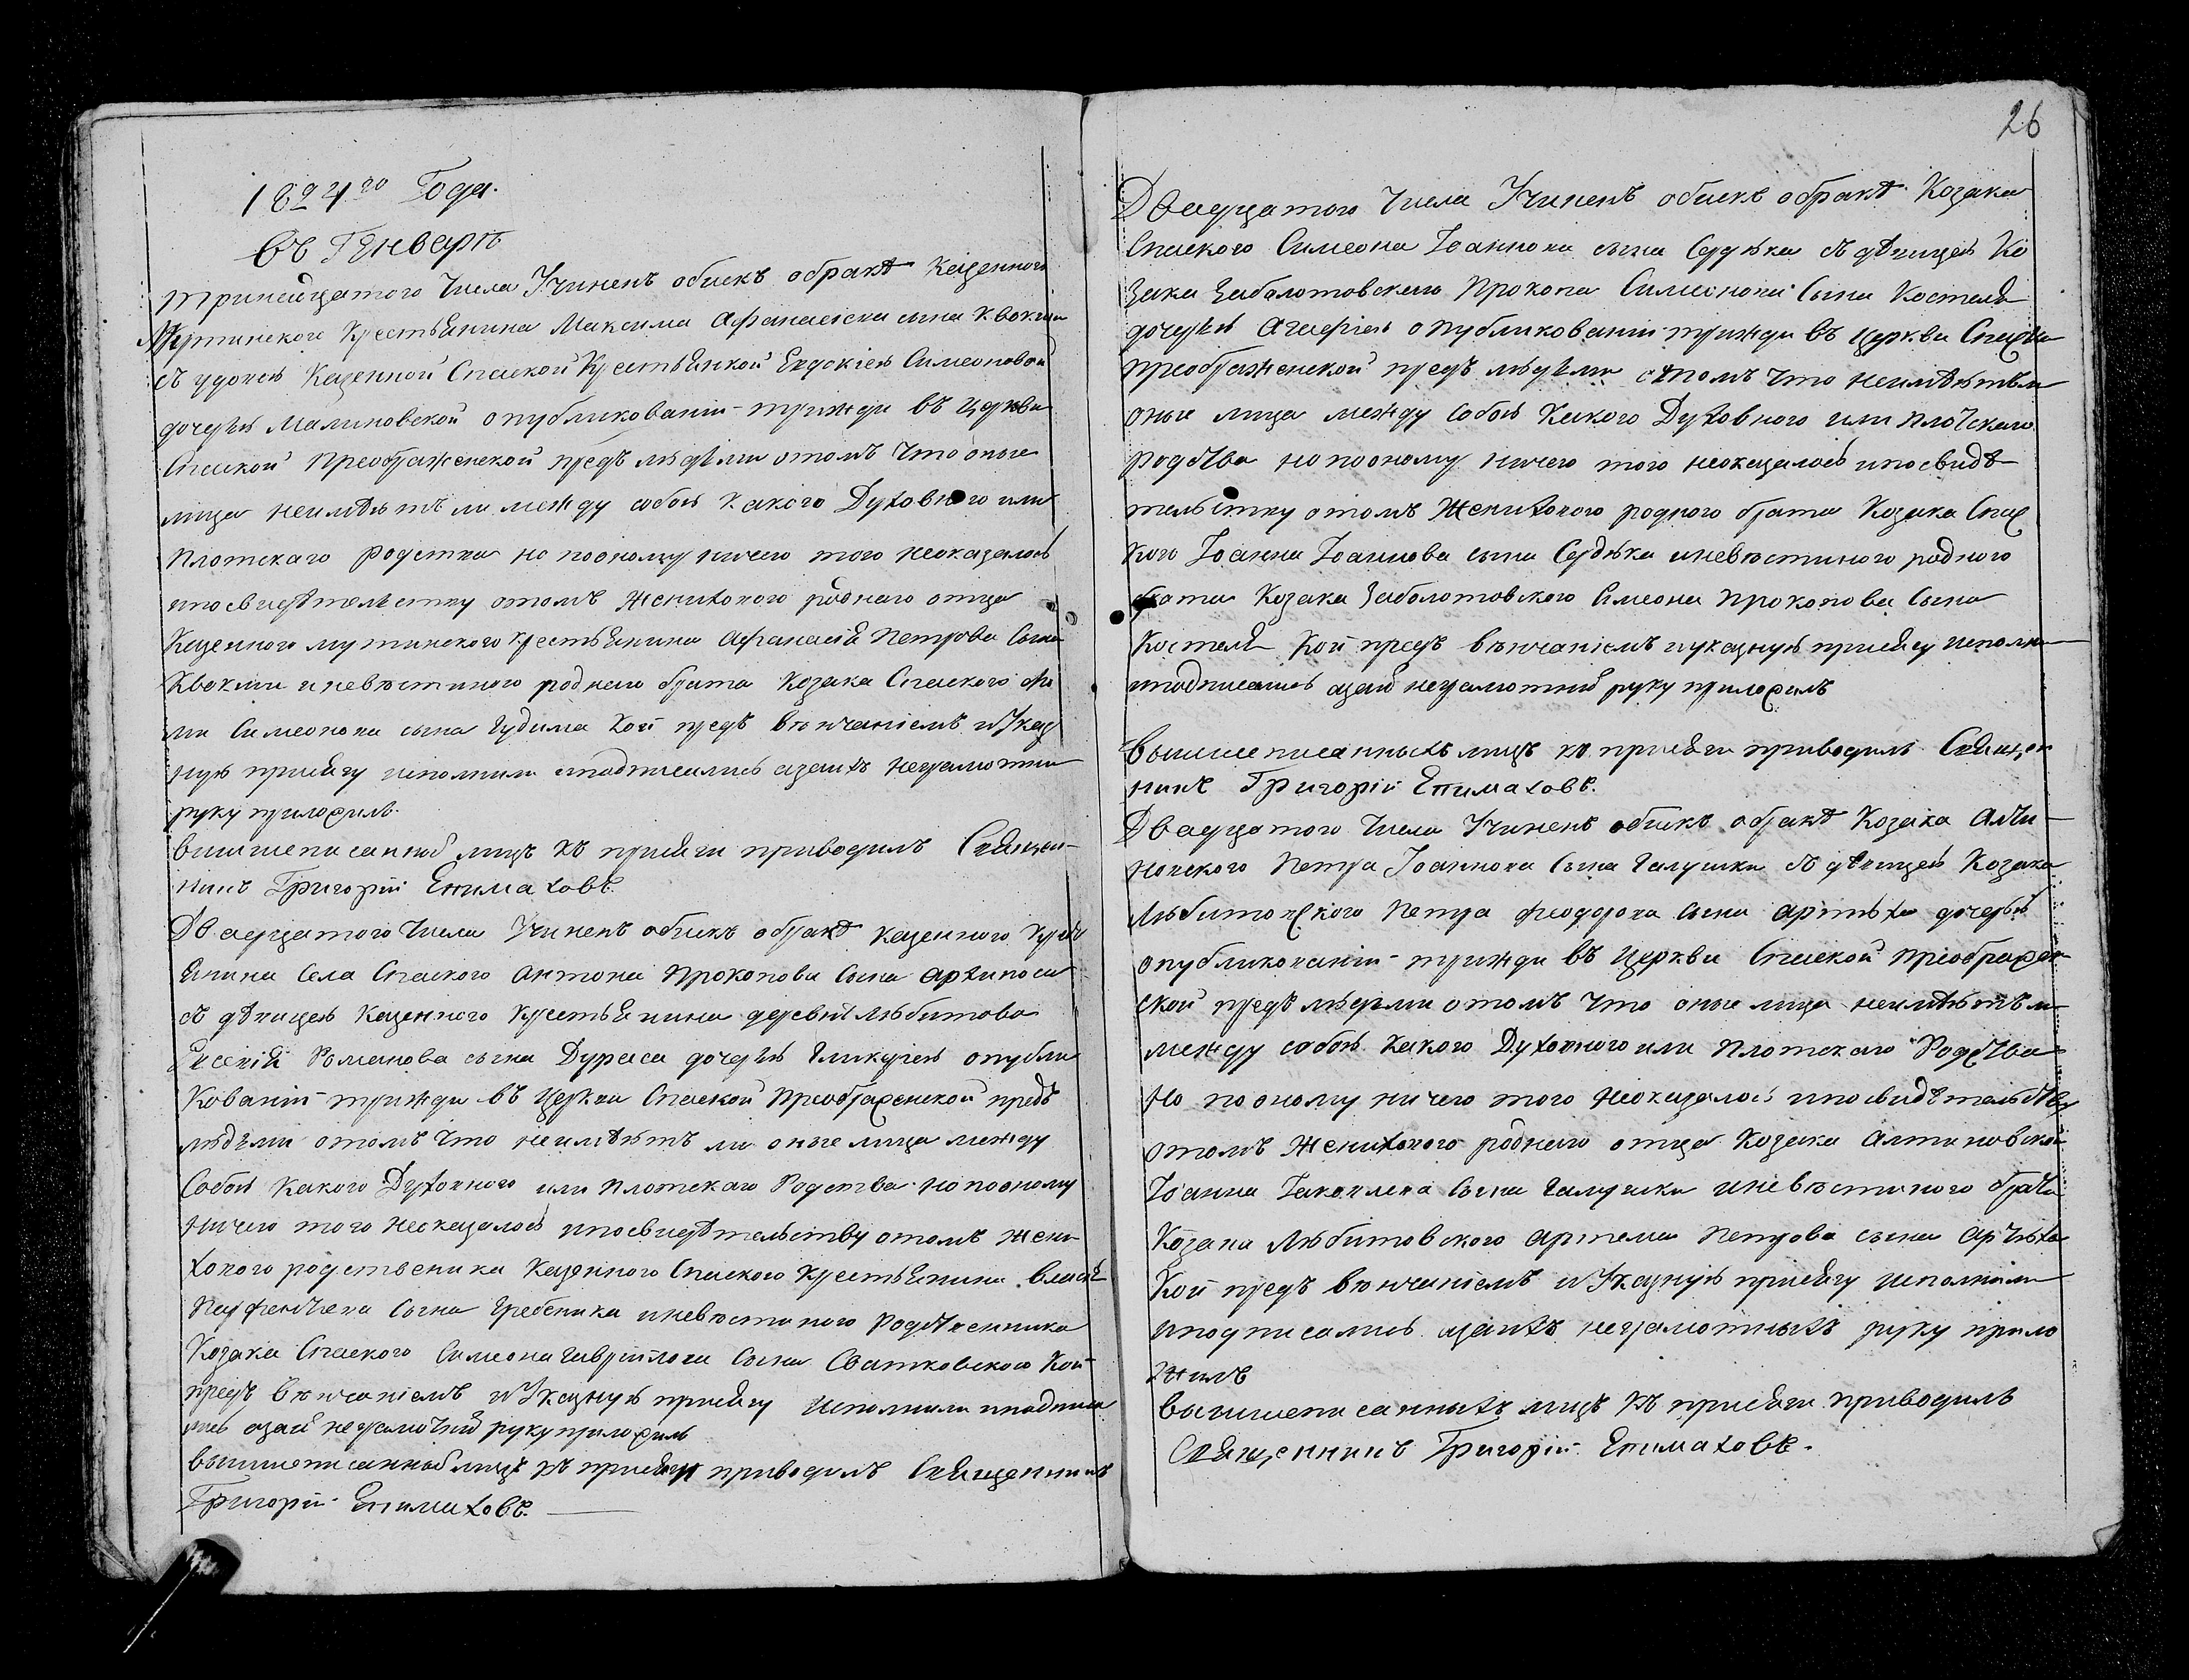 1824го Года.
въ Генваре
тринадцатого Числа Учиненъ обыскъ обракѣ Казенного
Мутинского Крестьянина Максима Афанасіева сына Квокши
съ удовою Казенной Спаской Крестьянкой Евдокіею Симеоновой
дочерью Малиновской опубликованіи трижди въ Церкви
Спаской Преображенской предъ людьми отомъ Что оные
лица неимѣютъ ли между собою какого Духовного или
Плотскаго родства но поономy ничего того неоказалось
ипосвидѣтельству отомъ Женихового родного отца
Казенного мутинского крестьянина Афанасія Петрова Сына
Квокши иневѣстиного родного брата Козака Спаского
ми Симеонова сына Гудима Кои предъ вѣнчаніемъ иУказ
ную присягу исполнили иподписались азаихъ неграмотних
руку приложилъ.
вышеписанныхъ лицъ къ присяги приводилъ Священ-
никъ Григорій Епимаховъ.
Двадцатого Числа Учиненъ обыскъ обракѣ казенного Крест
янина Села Спаского Антона Прокопова Сына Архипоса
съ дѣвицею Казенного Крестьянина деревни Любитова
Евсевія Романова сына Дураса дочерью Гликеріею опубли
Кованіи трижди въ Церкви Спаской Преображенской предъ
людьми отомъ Что неимѣютъ ли оные лица между
Собою Какого Духовного или Плотскаго Родства но поономy
ничего того неоказалось ипосвидѣтельству отомъ Жени-
хового родственика Казенного Спаского Крестьянина Власія
Парфентіева Сына Гребеника иневѣстиного Родственника
Козака Спаского Симеона Гавріилова Сына Сватковского Кои
предъ вѣнчаніемъ иУказную присягу исполнили иподписа
лись азаихъ неграмотних руку приложилъ
вышеписанныхъ лицъ къ присяги приводилъ Священникъ
Григорій Епимаховъ.
26
Двадцатого Числа Учиненъ обыскъ обракѣ Козака
Спаского Симеона Іоаннова сына Сердюка съ дѣвицею Ко
Зака Заболотовскаго Прокопа Симеонова Сына Костеля
дочерью Агафіею опубликованіи трижди въ Церкви Спаской
Преображенской предъ людьми отомъ Что неимѣютъли
оные лица между собою Какого Духовного или Плотскаго
Родства но поономy ничего того неоказалось ипосвидѣ
тельству отомъ Женихового родного брата Козака Спас
кого Іоанна Іоаннова сына Сердюка иневѣстиного родного
брата Козака Заболотовского Симеона Прокопова Сына
Костеля Кои предъ вѣнчаніемъ иуказную присягу исполни
иподписались азаихъ неграмотних руку приложилъ
Вышшеписанныхъ лицъ къ присяги приводилъ Священ
никъ Григорій Епимаховъ.
Двадцатого Числа Учиненъ обыскъ обракѣ Козака Алти-
новского Петра Іоаннова Сына Галушки съ дѣвицею Козака
Любитовского Петра Феодорова Сына Артюха дочерью
опубликованіи трижди въ Церкви Спаской Преображен
ской предъ людьми отомъ Что оные лица неимѣютъли
между собою Какого Духовного или Плотскаго Родства
Но поономy ничего того неоказалось ипосвидѣтельству
отомъ Женихового родного отца Козака Алтиновского
Іоанна Іаковлева Сына Галушки иневѣстиного брата
Козака Любитовского Артема Петрова сына Артюха
Кои предъ вѣнчаніемъ иУказную присягу исполнили
иподписались азаихъ неграмотныхъ руку прило
жилъ
вышшеписанныхъ лицъ къ присяги приводилъ
Священникъ Григорій Епимаховъ.